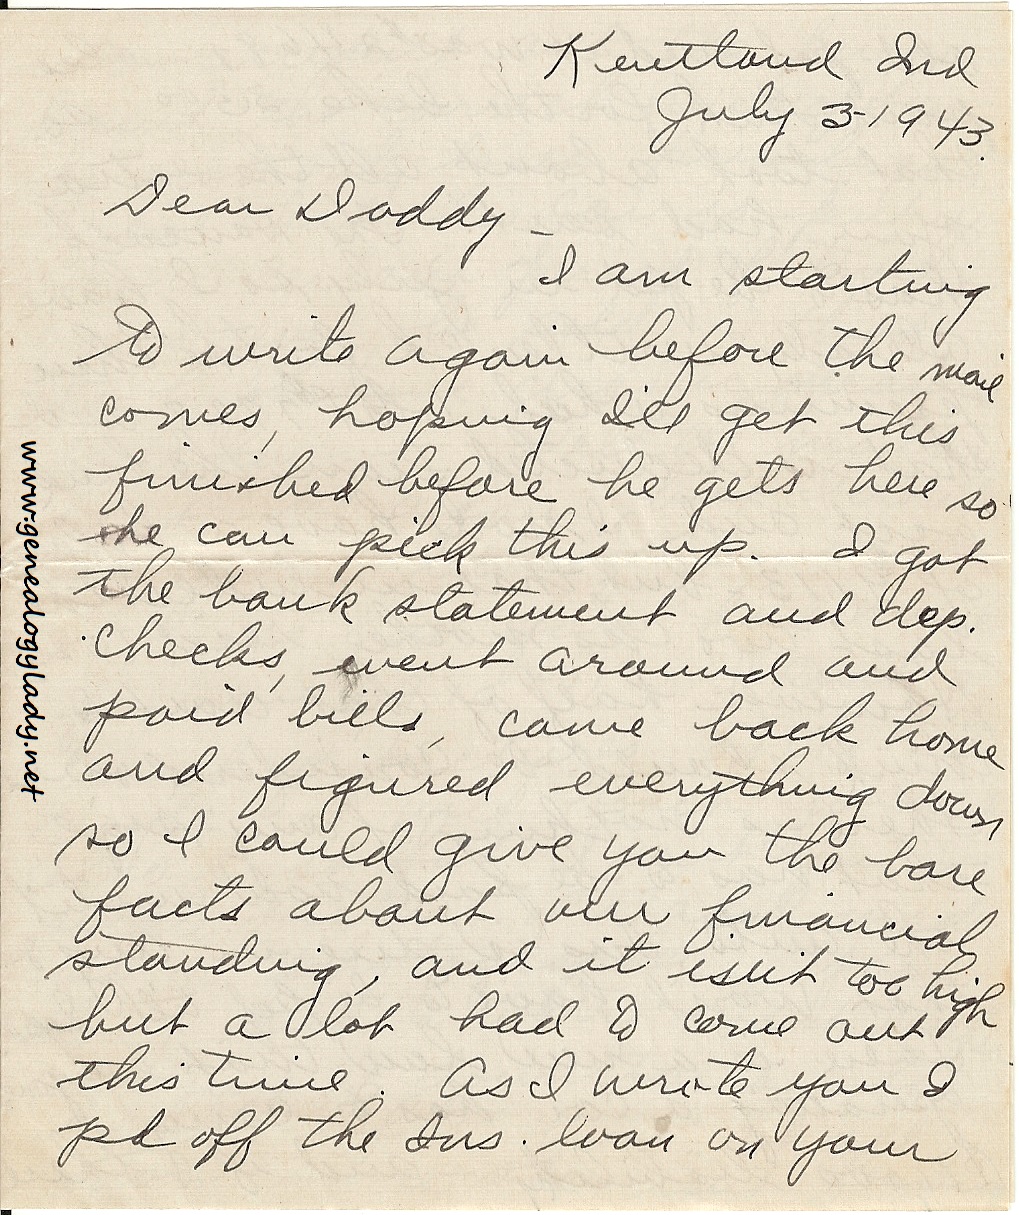 Kentland Ind
July 3-1943.
Dear Daddy -
I am starting
to write again before the mail
comes, hoping I'll get this
finished before he gets here so
he can pick this up. I got
the bank statement and dep.
checks, went around and
paid bills, came back home
and figured everything down
so I could give you the bare
facts about our financial
standing, and it isn't too high
but a lot had to come out
this time. As I wrote you I
pd off the Ins. loan on your
www.genealogylady.net